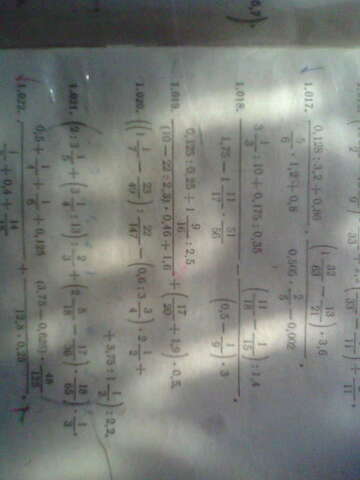 1.017. (0,128 : 3,2 + 0,86) / (5/6 · 1,2 + 0,8) · ((1 32/63 − 13/21) · 3,6) / (0,505 · 2/5 − 0,002).
1.018. (3 1/3 : 10 + 0,175 : 0,35) / (1,75 − 1 11/17 · 51/56) − ((11/18 − 1/15) : 1,4) / ((0,5 − 1/9) · 3).
1.019. (0,125 : 0,25 + 1 9/16 : 2,5) / ((10 − 22 : 2,3) · 0,46 + 1,6) + (17/20 + 1,9) · 0,5.
1.020. ((1 1/7 − 23/49) : 22/147 − (0,6 : 3 3/4) · 2 1/2 +
+ 3,75 : 1 1/2) : 2,2.
1.021. (2 : 3 1/5 + (3 1/4 : 13) : 2/3 + (2 5/18 − 17/36) · 18/65) · 1/3.
1.022. (0,5 + 1/4 + 1/6 + 0,125) / (+ 0,4 + 14/15) + ((3,75 − 0,625) · 48/125) / (12,8 · 0,25).